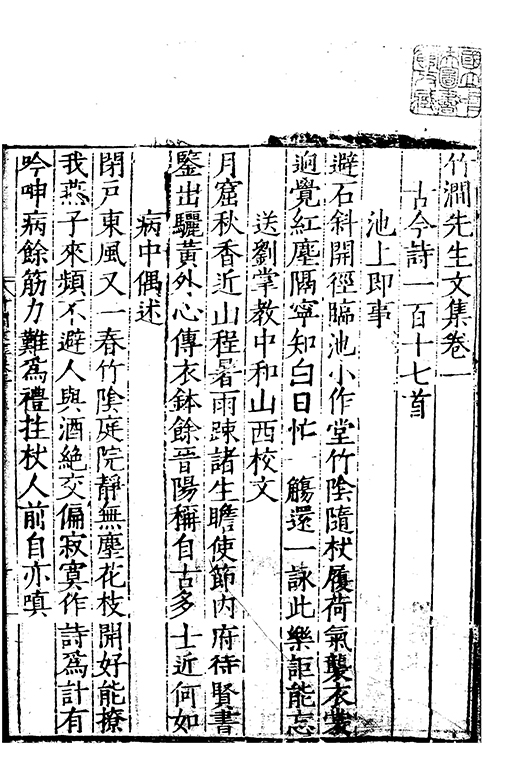 竹澗先生文集卷一
古今詩一百十七首
池上即事
避石斜開徑臨池小作堂竹陰隨杖履荷氣襲衣裳
逈覺紅塵隔寧知白日忙一觴還一詠此樂詎能忘
送劉掌教中和山西校文
月窟秋香近山程暑雨踈諸生瞻使節内府待賢書
鑒出驪黃外心傳衣鉢餘晉陽稱自古多士近何如
病中偶述
閉戸東風又一春竹陰庭院靜無塵花枝開好能撩
我燕子來頻不避人與酒絶交偏寂寞作詩爲計有
吟呻病餘筋力難爲禮拄杖人前自亦嗔